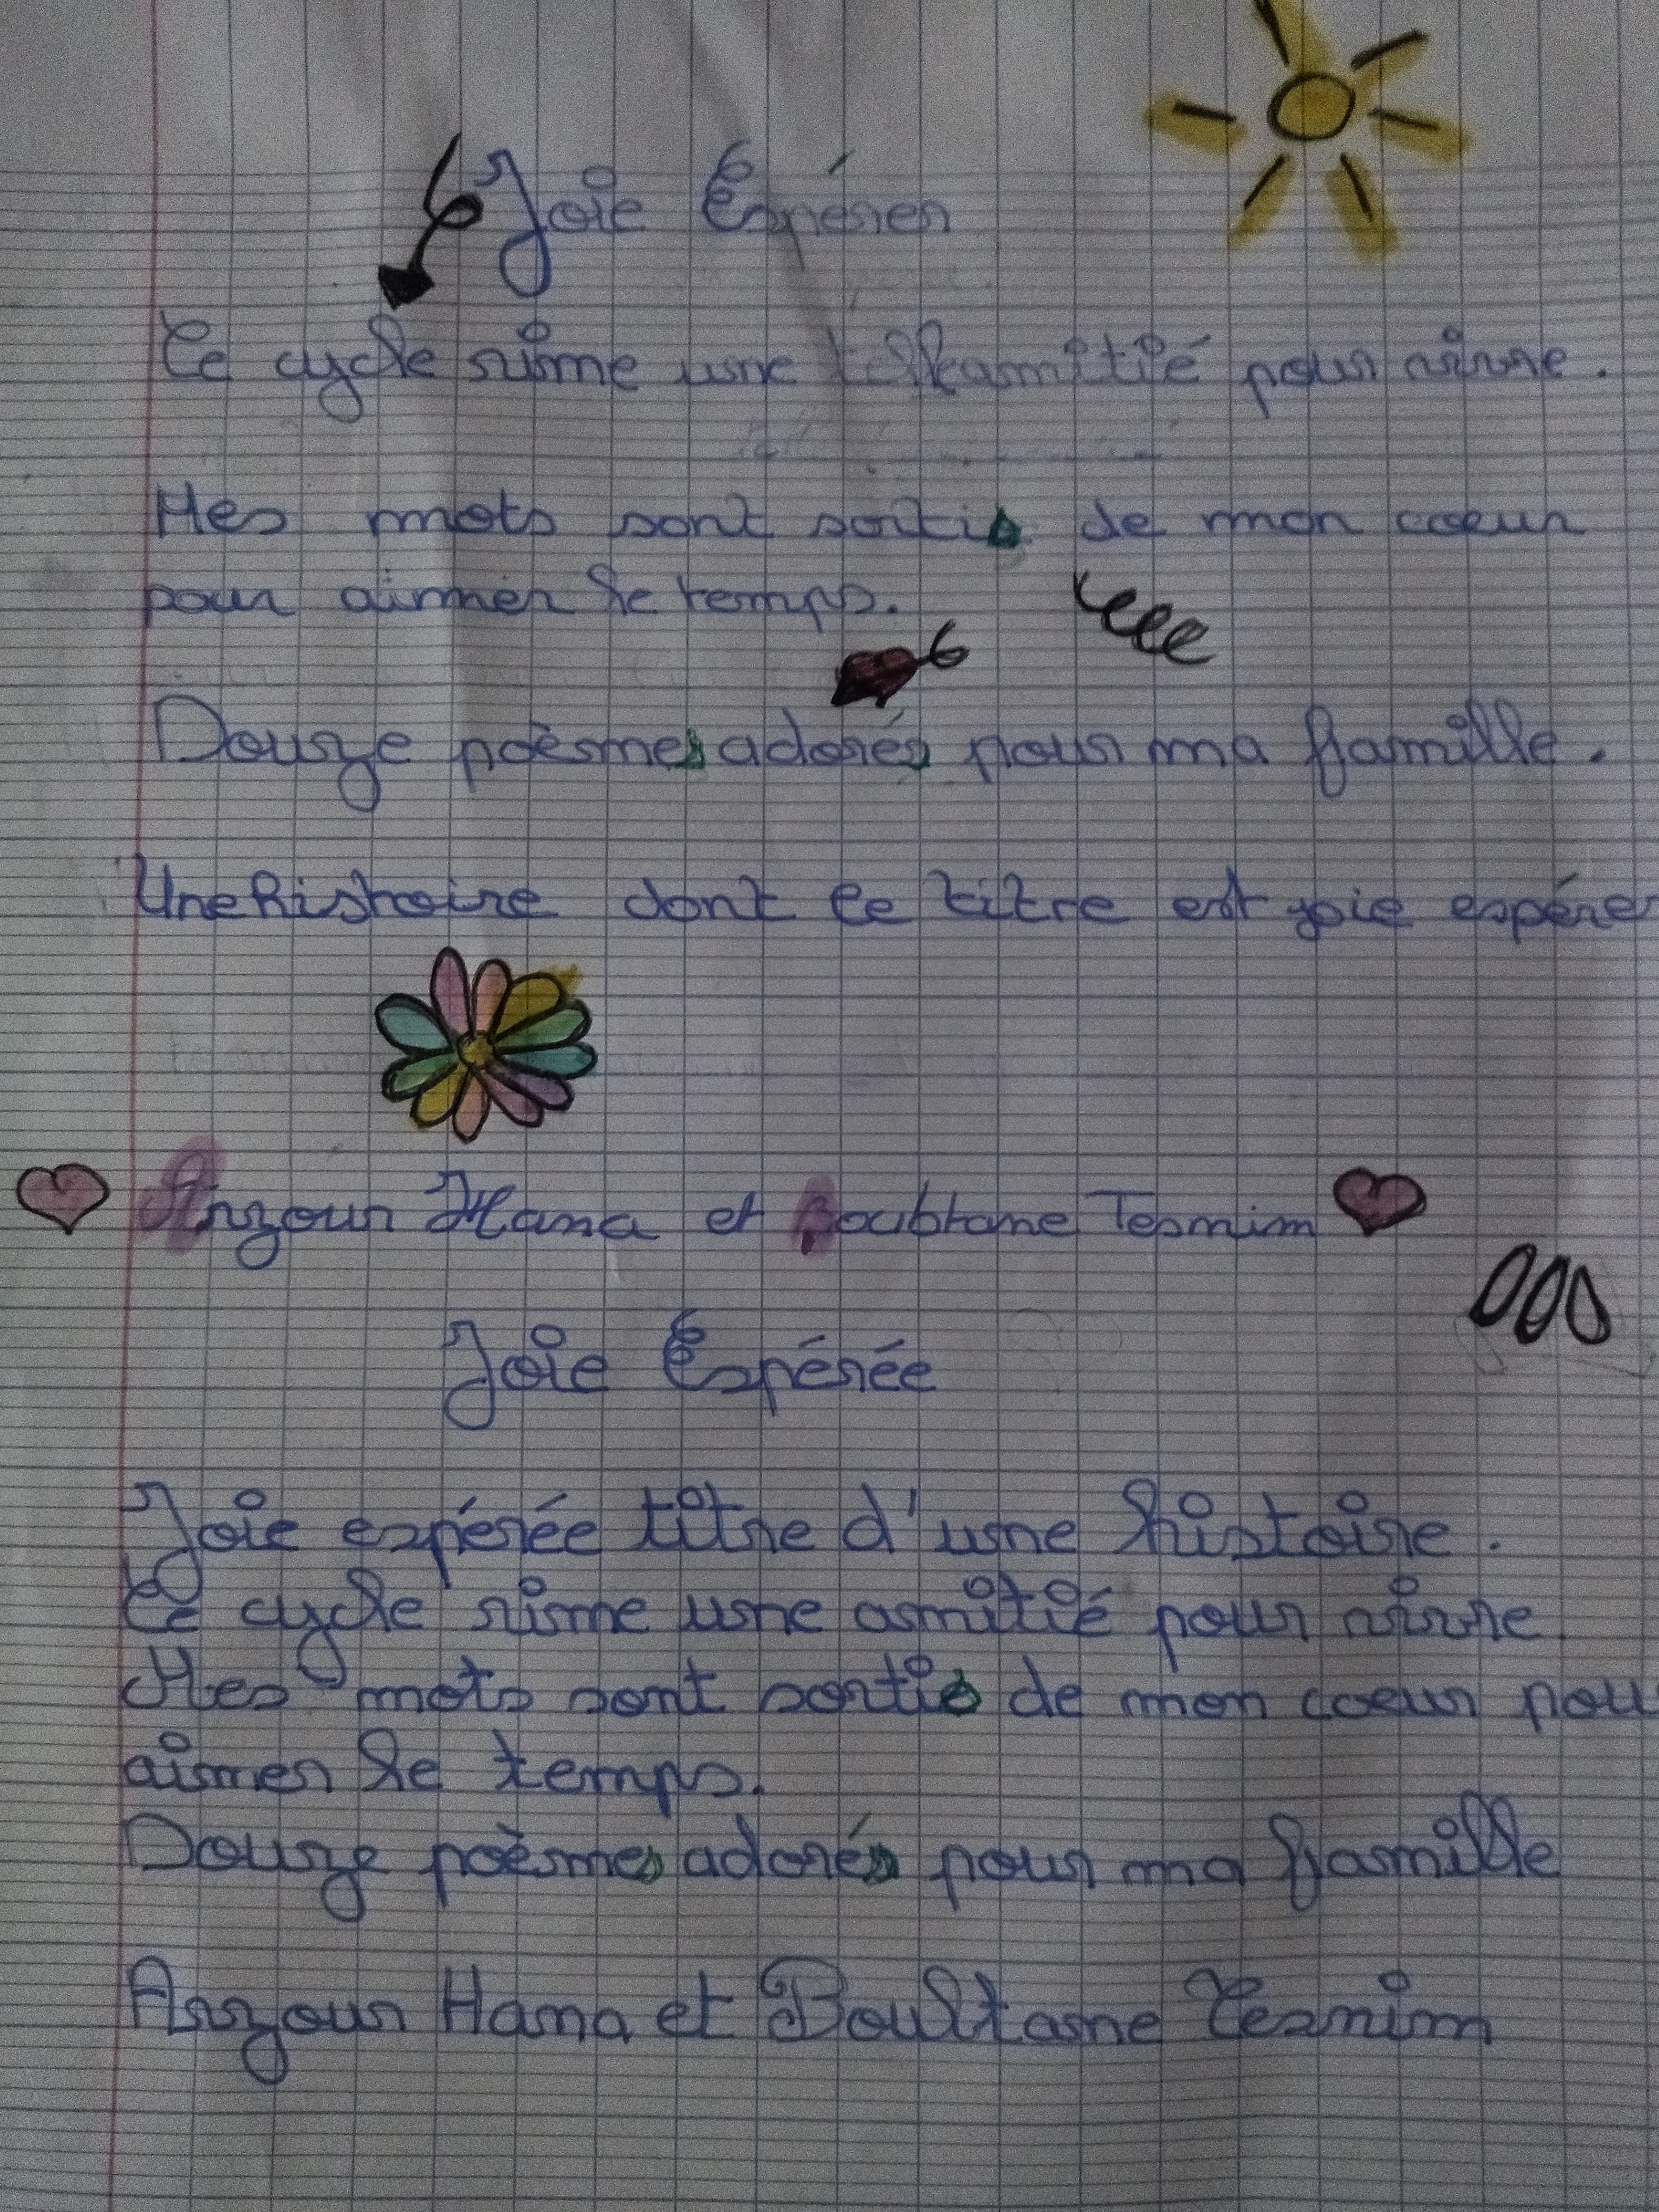 Joie Espérer
Ce cycle rime une amitié pour vivre.
Mes mots sont sortis de mon coeur
pour aimer le temps.
Douze poèmes adorés pour ma famille.
Une histoire dont le titre est joie espérer
Arzour Hana et Tesnim
Joie Espérée
Joie espérée titre d'une histoire.
Ce cycle rime une amitié pour vivre
Mes mots sont sortis de mon coeur pou
aimer le temps.
Douze poèmes adorés pour ma famille
Arzour Hana et Boultane Tesnim